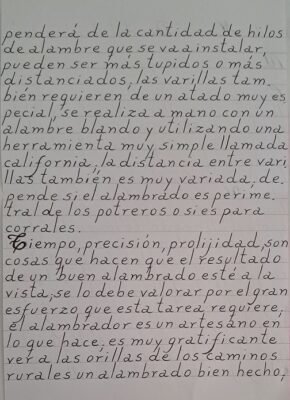 penderá de la cantidad de hilos
de alambre que se va a instalar,
pueden ser más tupidos o más
distanciados, las varillas tam.
bién requieren de un atado muy es
pecial, se realiza a mano con un
alambre blando y utilizando una
herramienta muy simple llamada
california, la distancia entre vari
llas también es muy variada, de.
pende si el alambrado es perime.
tral de los potreros o si es para
corrales.
Tiempo, precisión, prolijidad, son
cosas que hacen que el resultado
de un buen alambrado esté a la
vista, se lo debe valorar por el gran
esfuerzo que esta tarea requiere,
el alambrador es un artesano en
lo que hace, es muy gratificante
ver a las orillas de los caminos
rurales un alambrado bien hecho,